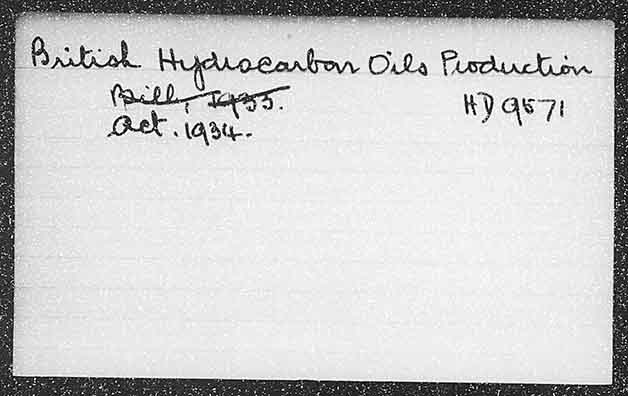 British Hydrocarbon Oils Production
Bill, 1933. HD 9571
Act. 1934.